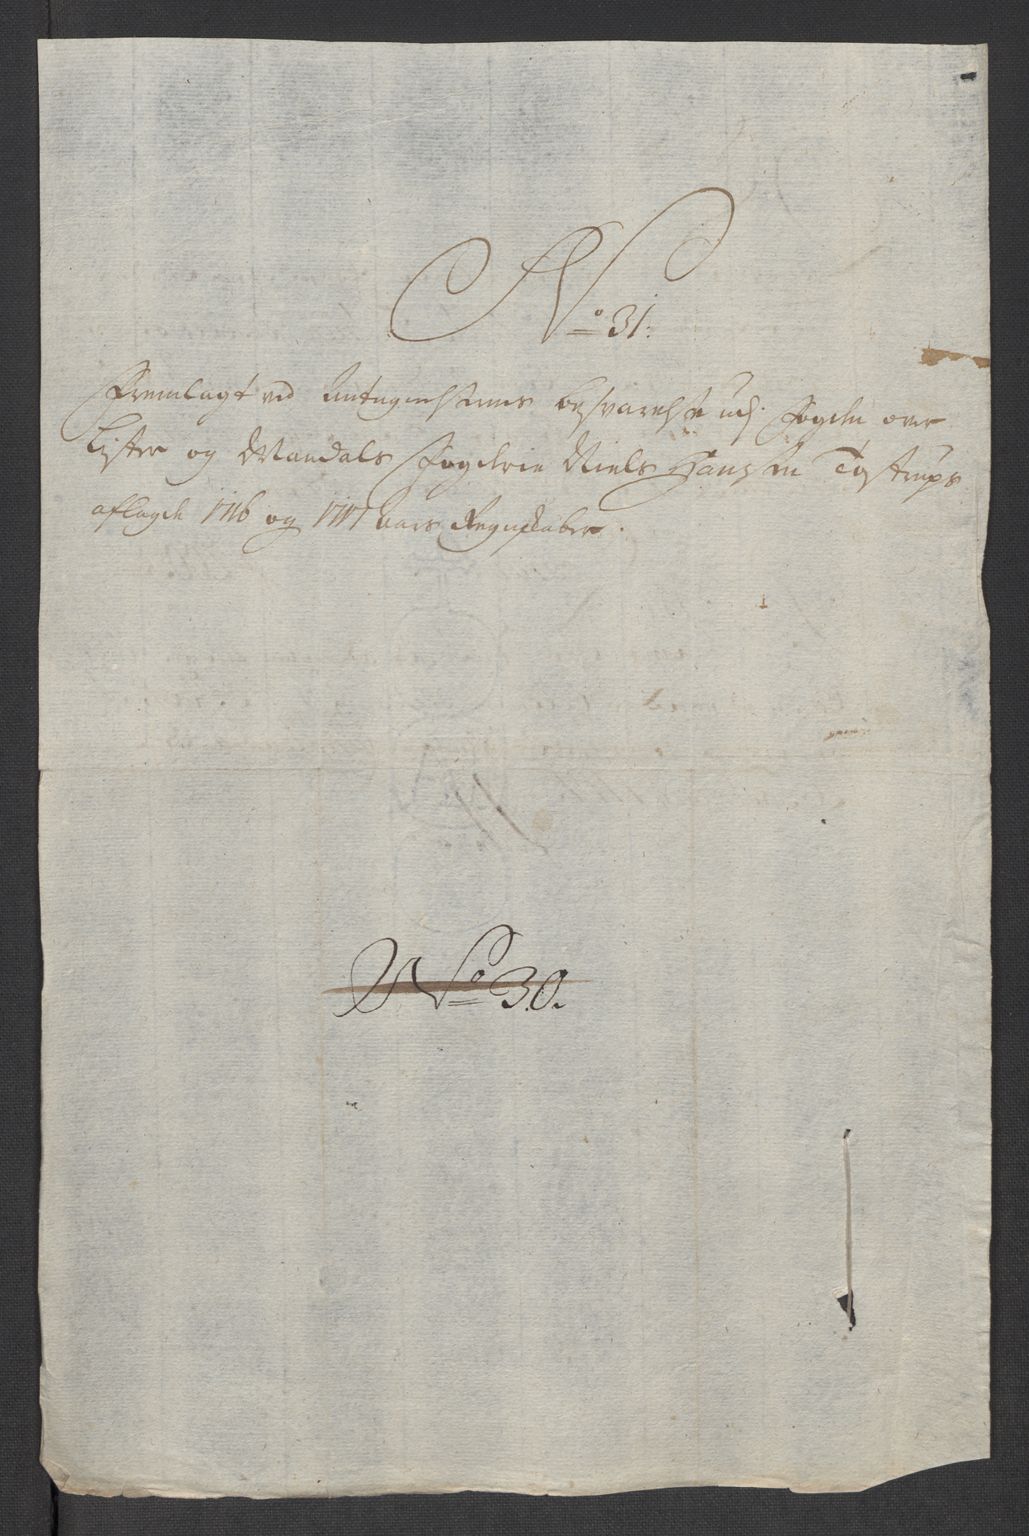 No 31.
Fremlagt ved Antegnelsernes besvarelse udj Fogden over
Lister og Mandals Fogderie Niels Hansen Tostrups
aflagde 1716 og 1717 Aars Regnskaber.
No 30.